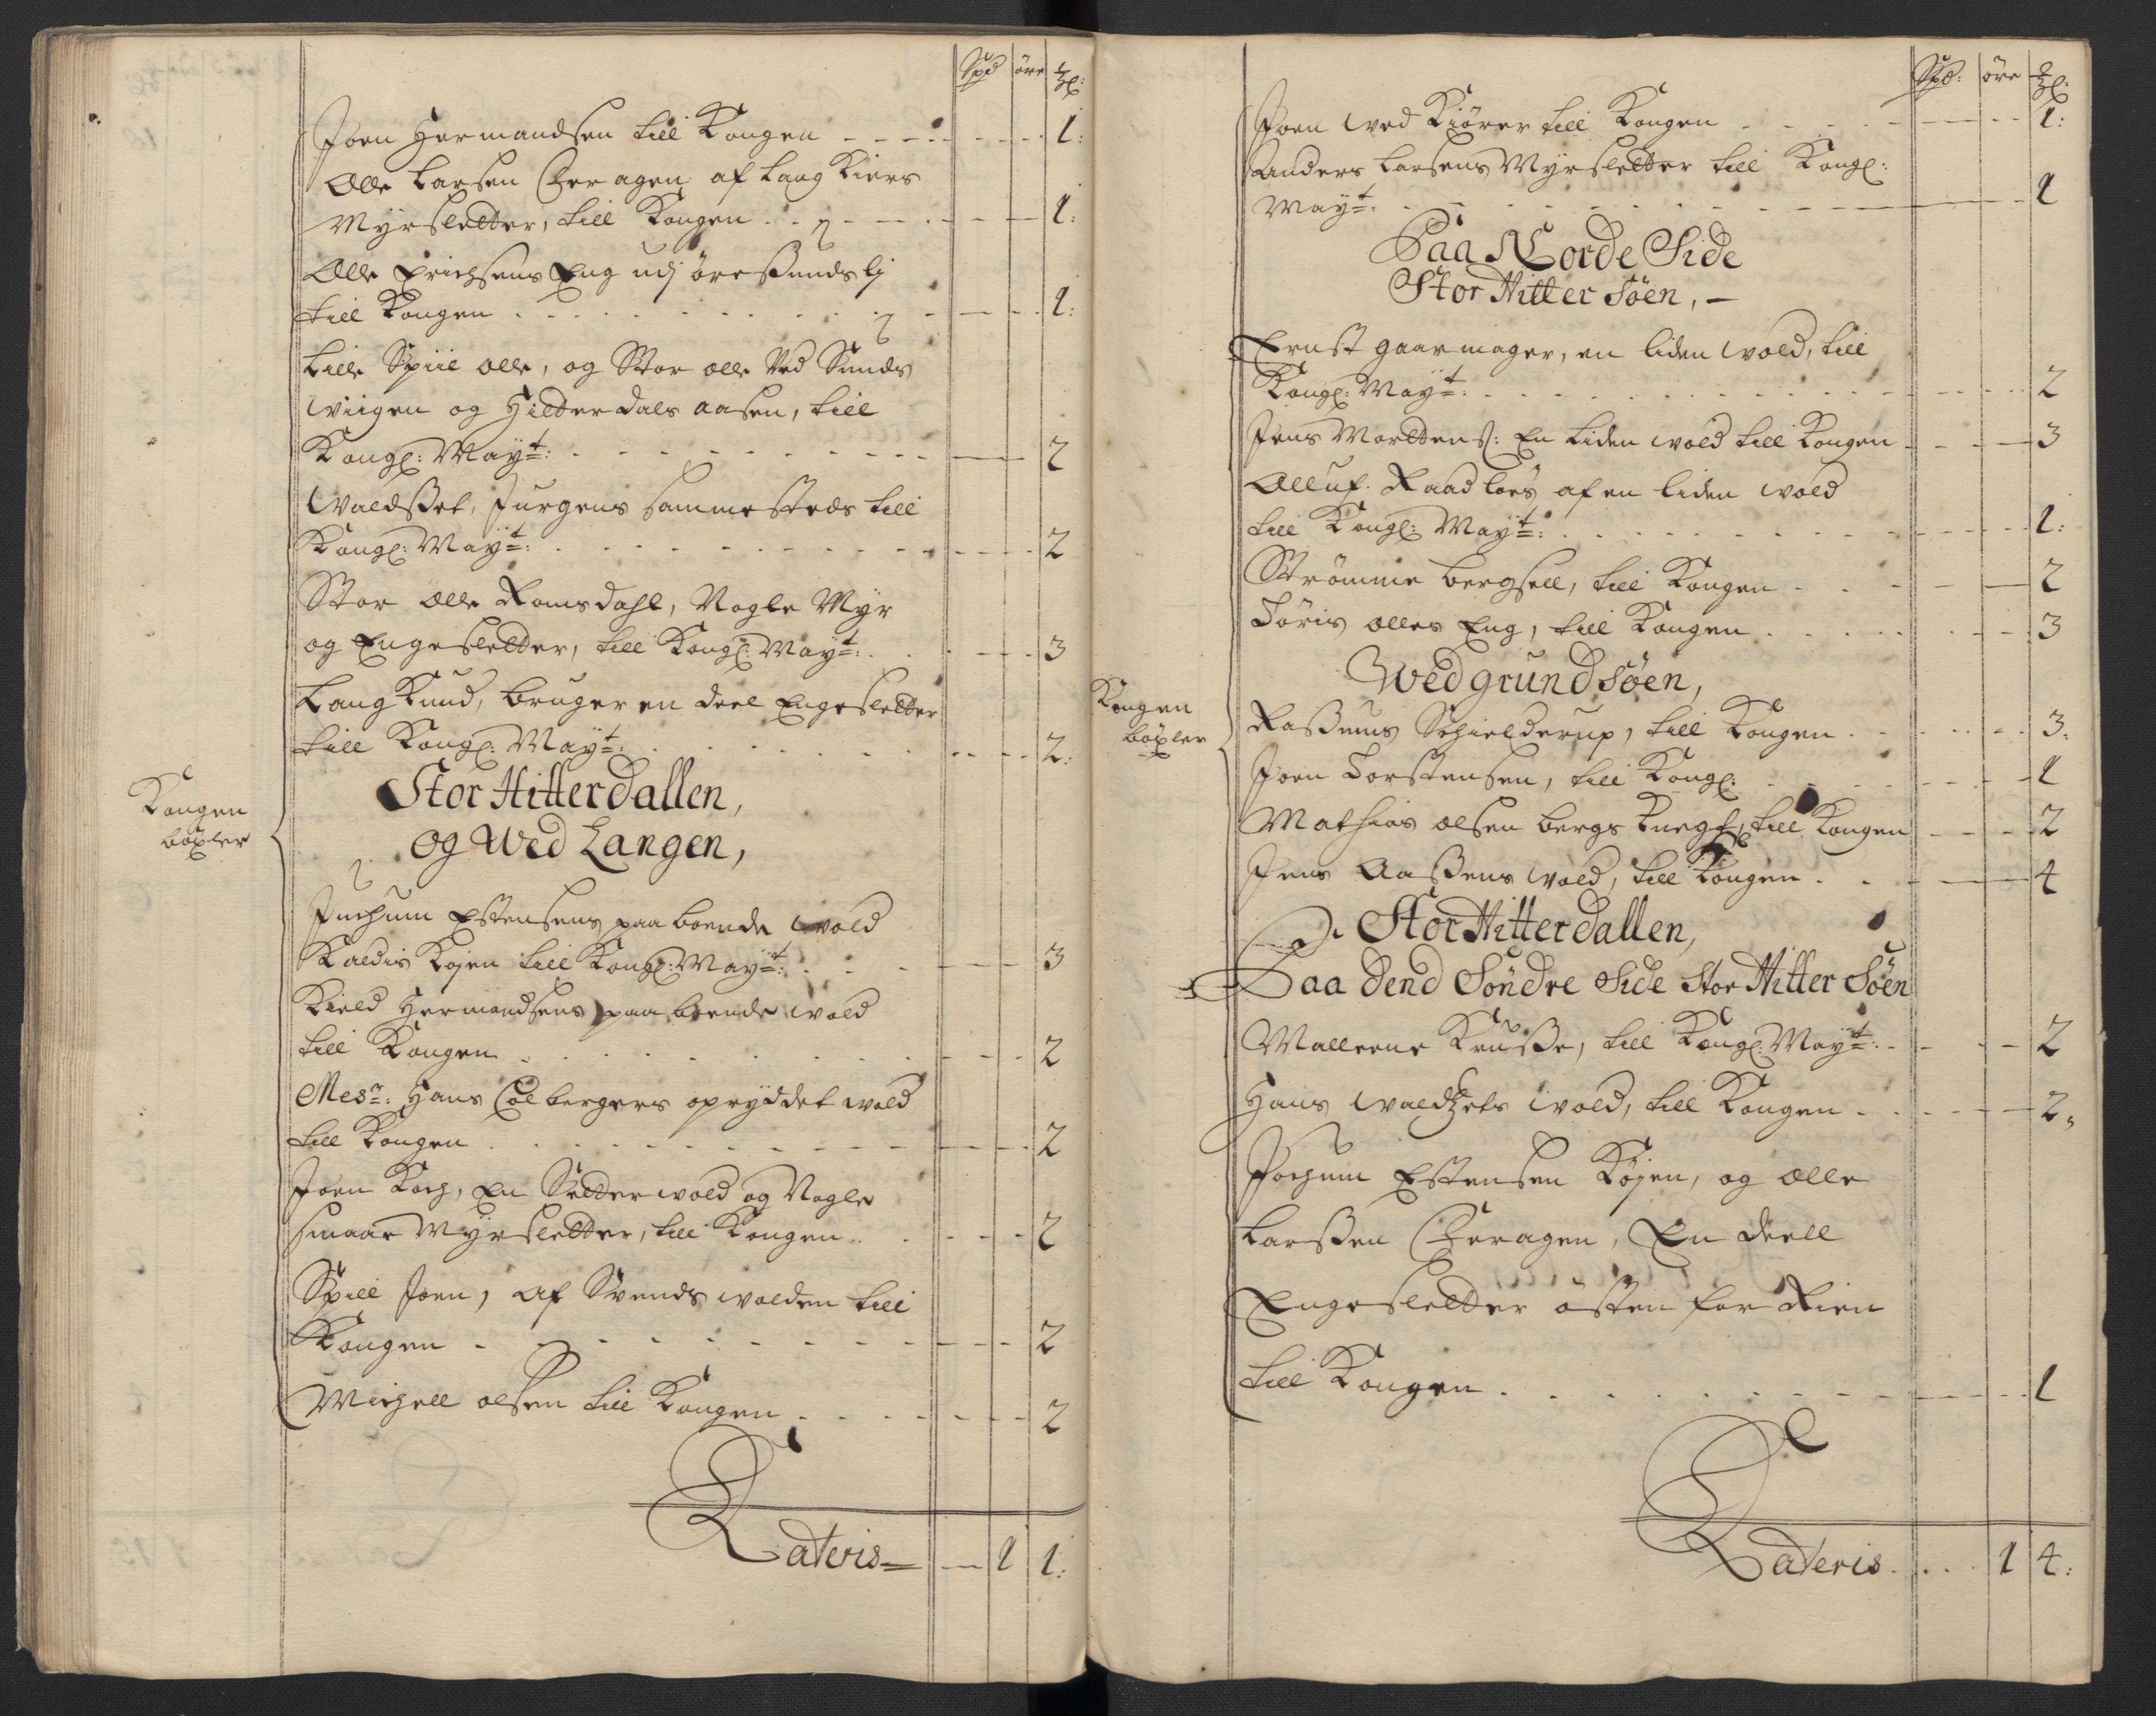 Spd øre
Joen Hermandsen till Kongen 1:
Olle Larsen Feragen af Lang Kiers
Myrsletter, till Kongen 1:
Olle Erichsens Eng udj øresundslj
till Kongen 1:
Lille Spiil olle, og Stor olle Ved Sunds
Wiigen og Hilterdals aasen, till
Kongl: May:t 2
Waldsset, Jurgens sammesteds till
Kongl: May:t 2
Stor olle Romsdahl, Nogle Myr
og Engesletter, till Kongl: May:t 3
Lang Knud, bruger en deel Engesletter
till Kongl: May:t 2:
Stor Hitterdallen,
og Wed Langen,
Kongen
bøxler
Jochum Estensens paaboende Wold
Kaldis Køjen till Kongl: May:t 3
Kield Hermandsens paaboende Wold
till Kongen 2
Mesr: Hans Colbergers opryddet Wold
till Kongen 2
Joen Koch, En Setter wold og Nogle
smaae Myrsletter, till Kongen 2
Spill Joen, af Svends wolden till
Kongen 2
Michell olsen till Kongen 2
Lateris 1 1:
Spd: øre
Joen Wed Kiører till Kongen 1:
Anders Larsens Myrsletter till Kongl:
May:t 1
Paa Norde Side
Stor Hitter Søen,
Ernst gaarmager, en liden Wold, till
Kongl: May:t 2
Jens Mortens: En Liden Wold till Kongen 3
Olluf Raadløs af en liden Wold
till Kongl: May:t 1:
Strømme bergsell, till Kongen 2
Tøris olles Eng, till Kongen 3
Wed grundsøen,
Kongen
bøxler
Rassmus Schielderup, till Kongen 3:
Joen Torstensen, till Kongl: 1
Mathias olsen bergs Knegt, till Kongen 2
Jens Aassens Wold, till Kongen 4
J. Stor Hitterdallen,
Paa dend Søndre Side Stor Hitter Søen
Malleene Krusse, till Kongl: May:t 2
Hans Waldzets Wold, till Kongen 2,
Jochum Estensen Køjen, og olle
Larssen Feragen, En deell
Engesletter østen for Rien
till Kongen 1
Lateris 1 4: